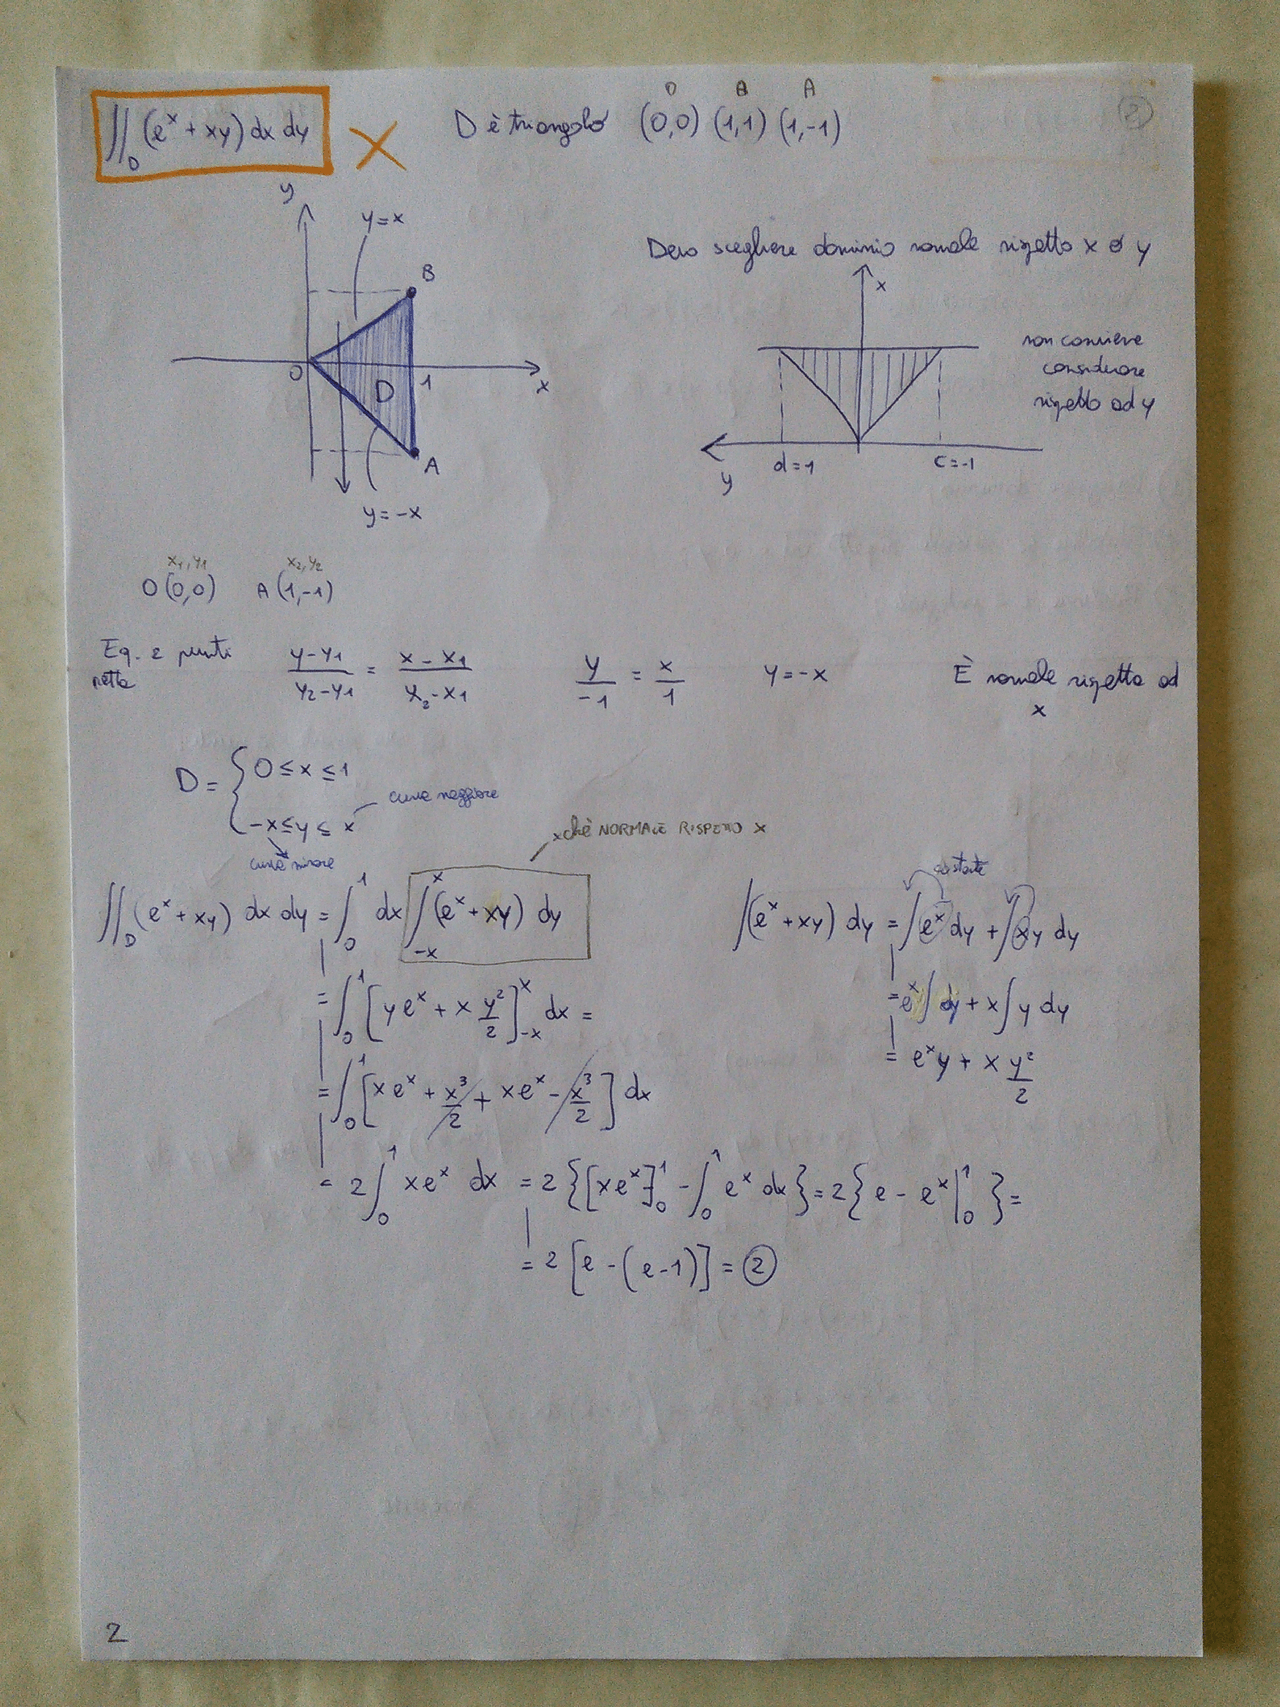 ∬_D (e^x + xy) dx dy
D è triangolo (0,0) (1,1) (1,-1)
O B A
2
y
y=x
B
O
D
1
x
A
y=-x
Devo scegliere dominio normale rispetto x o y
x
non conviene
considerare
rispetto ad y
y
d=1
c=-1
x1,y1 x2,y2
O(0,0) A(1,-1)
Eq. 2 punti
retta
(y-y1)/(y2-y1) = (x-x1)/(x2-x1)
y/-1 = x/1
y=-x
È normale rispetto ad
x
D = { 0≤x≤1
-x≤y≤x
curva maggiore
curva minore
xchè NORMALE RISPETTO X
∬_D (e^x + xy) dx dy = ∫_0^1 dx ∫_{-x}^x (e^x + xy) dy
= ∫_0^1 [y e^x + x y²/2]_{-x}^x dx =
= ∫_0^1 [x e^x + x³/2 + x e^x - x³/2] dx
= 2 ∫_0^1 x e^x dx = 2 {[x e^x]_0^1 - ∫_0^1 e^x dx} = 2 {e - e^x |_0^1 } =
= 2 [e - (e-1)] = 2
costante
∫(e^x + xy) dy = ∫e^x dy + ∫xy dy
= e^x ∫dy + x ∫y dy
= e^x y + x y²/2
2